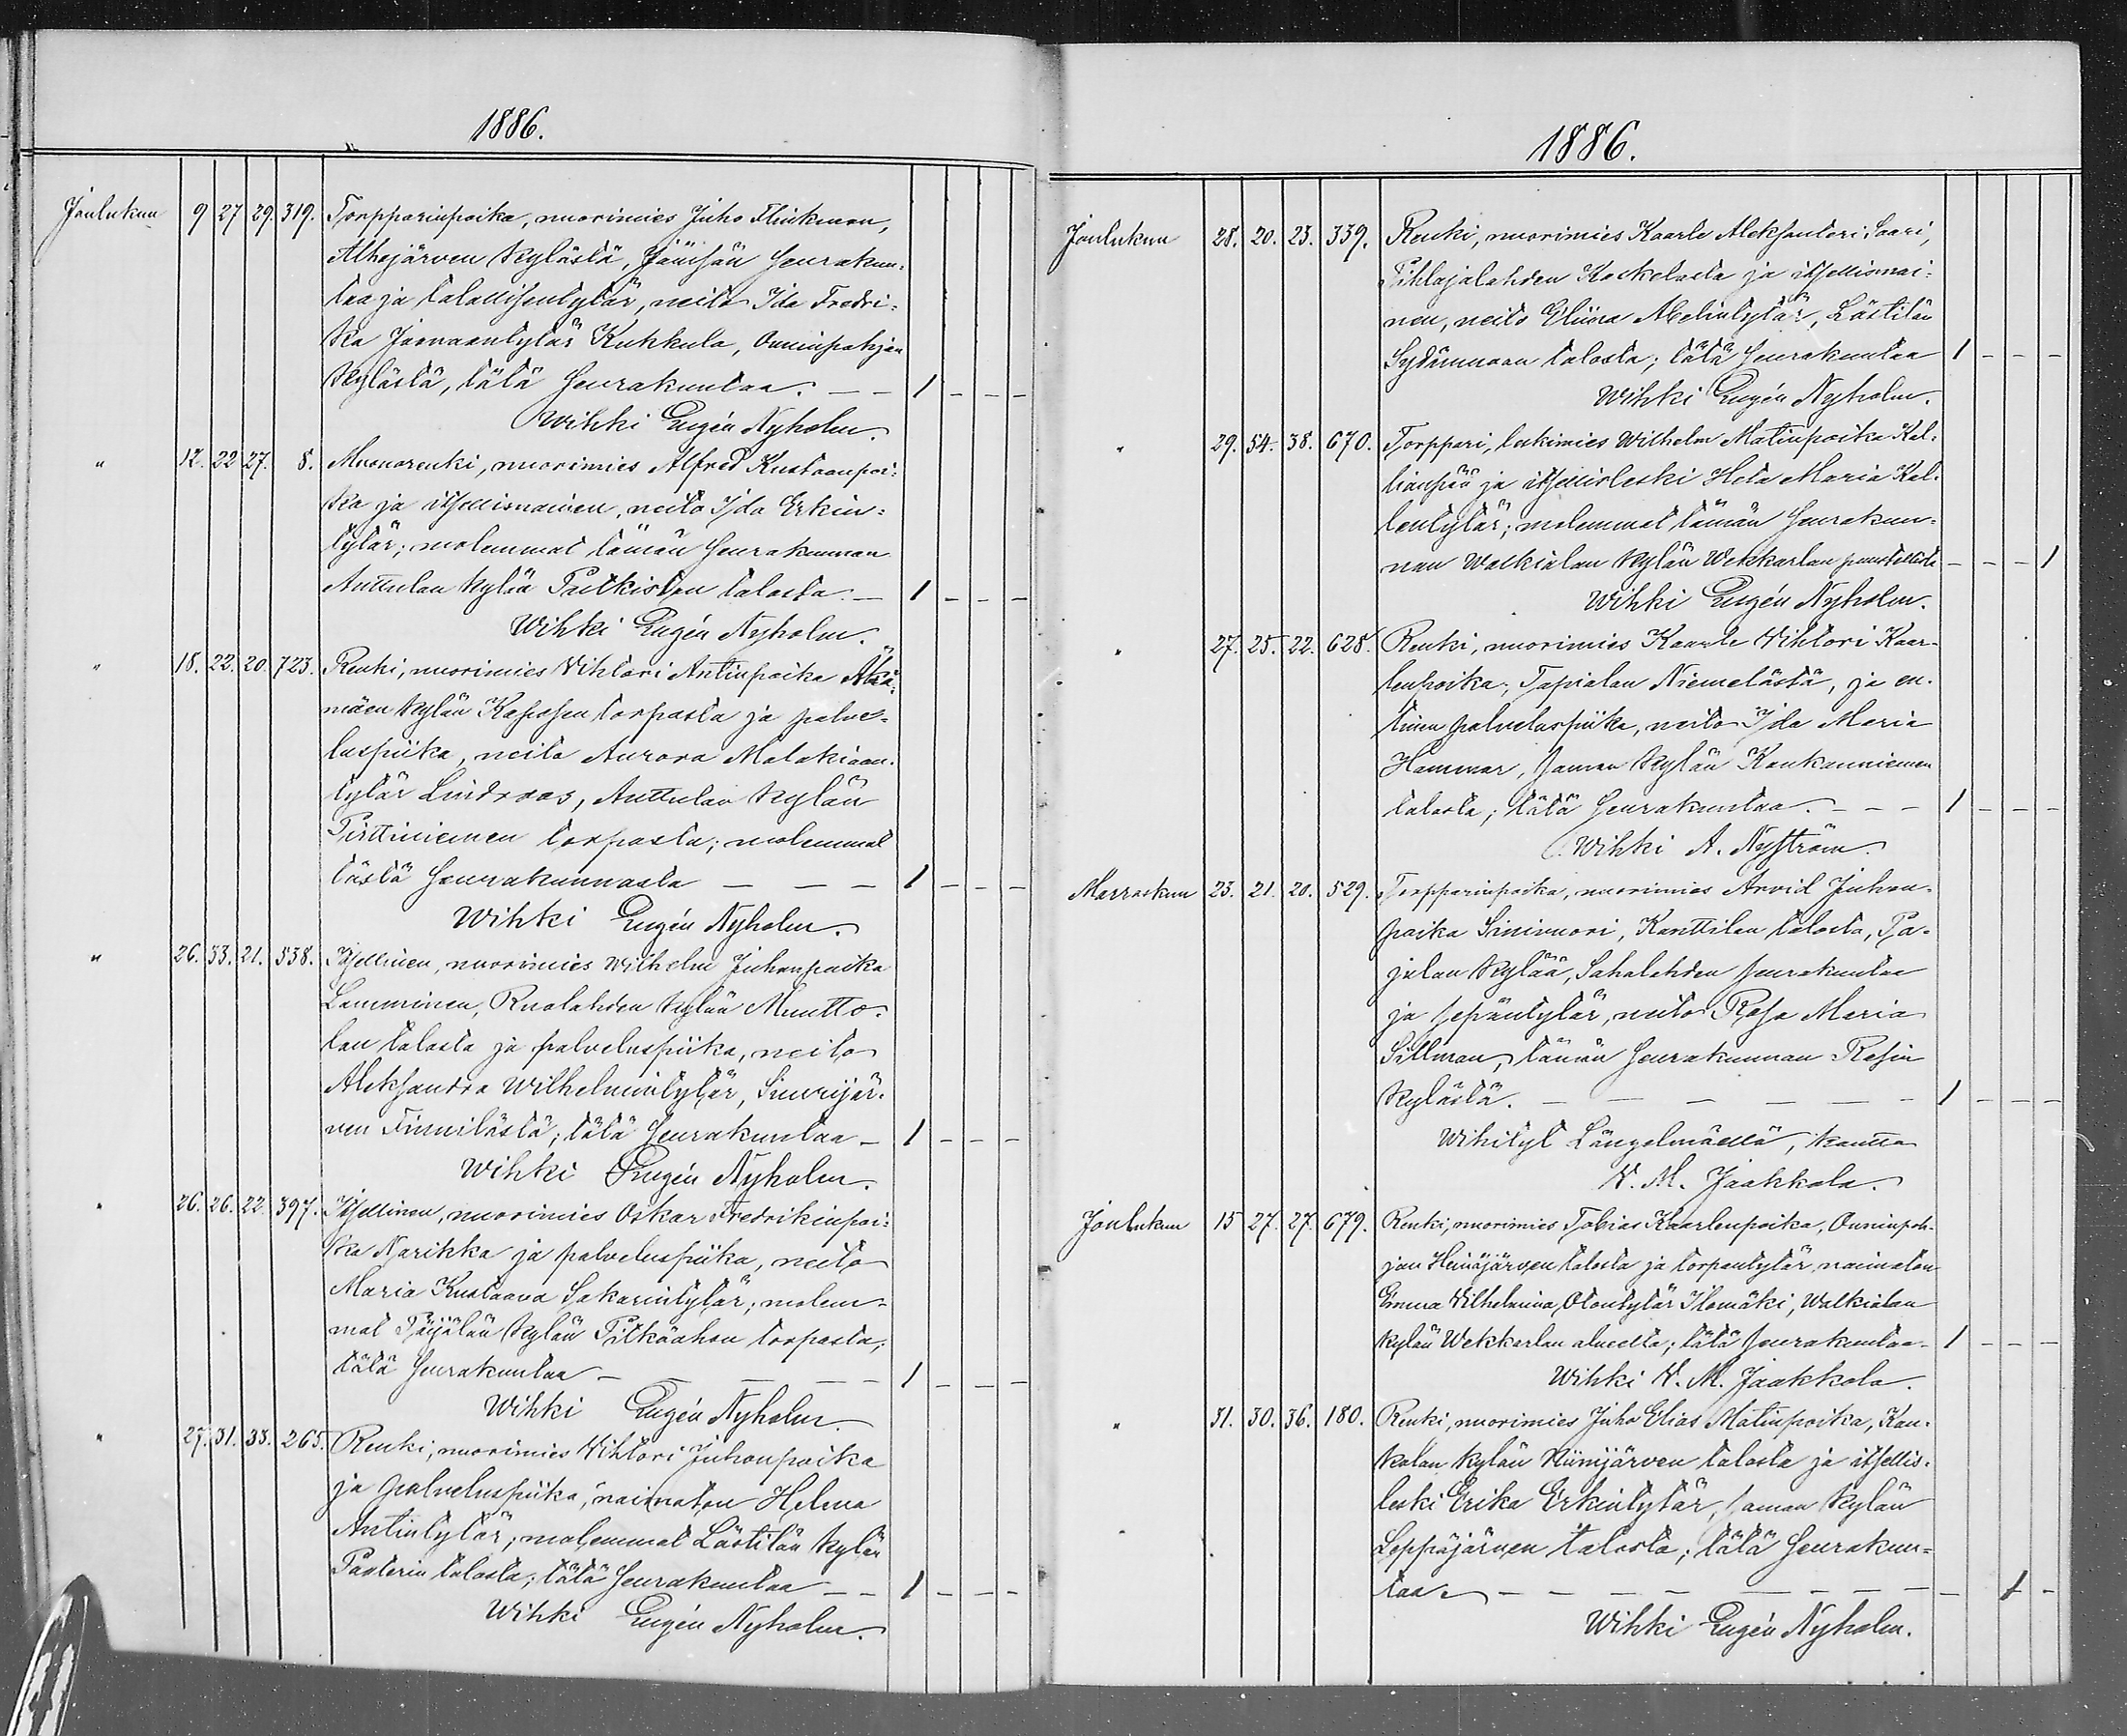 1886.
Joulukun 9 27 29. 319. Torpparinpoika, nuorimies Juho Flinkman,
Alhojärven kylästä, Jämsän seurakun-
taa ja talollisentytär, neito Ida Fredri-
ka Joonaantytär Kukkula, Onninpohjan
kylästä, tätä seurakuntaa. — — 1 - - -
Wihki Eugén Nyholm.
" 12. 22 27. 8. Muonarenki, nuorimies Alfred Kustaanpoi-
ka ja itsellisnainen, neito Ida Erkin-
tytär; molemmat tämän seurakunnan
Anttulan kylän Putkiston talosta. — 1 - - -
Wihki Eugén Nyholm.
" 18. 22. 20. 723. Renki, nuorimies Wihtori Antinpoika
mäen kylän torpasta ja palve-
luspiika, neito Aurora Malakiaan-
tytär Lindroos, Anttulan kylän
Pirttiniemen torpasta; molemmat
tästä seurakunnasta — — — 1 - - -
Wihki Eugén Nyholm.
" 26. 33. 21. 538. Itsellinen, nuorimies Wilhelm Juhonpoika
Lamminen, Ruolahden kylän Muutto-
lan talosta ja palveluspiika, neito
Aleksandra Wilhelmintytär,
ven Finnilästä; tätä seurakuntaa — 1 - - -
Wihki Eugén Nyholm.
" 26. 26. 22. 397. Itsellinen, nuorimies Oskar Fredrikinpoi-
ka Narikka ja palveluspiika, neito
Maria Kustaava Sakarintytär; molem-
mat Päijälän kylän Pitkäahon torpasta;
tätä seurakuntaa — — — — 1 - - -
Wihki Eugén Nyholm.
" 27. 31. 33. 265. Renki, nuorimies Wihtori Juhonpoika
ja palveluspiika, naimaton Helena
Antintytär; molemmat Lästilän kylän
Pasterin talosta; tätä seurakuntaa — — 1 - - -
Wihki Eugén Nyholm.
1886.
Joulukun 28. 20. 23. 339. Renki, nuorimies Kaarle Aleksanteri Saari,
Pihlajalahden Kockelasta ja itsellisnai-
nen, neito Eliina Abelintytär, Lästilän
Sydänmaan talosta; tätä seurakuntaa 1 - - -
Wihki Eugén Nyholm.
" 29. 54. 38. 670. Torppari, leskimies Wilhelm Matinpoika Kal-
lianpää ja itsellisleski Heta Maria Kal-
lentytär; molemmat tämän seurakun-
nan Walkialan kylän Wekkarlan - - - 1
Wihki Eugén Nyholm.
" 27. 25. 22. 628. Renki, nuorimies Kaarle Wihtori Kaar-
lenpoika, Tapialan Niemelästä, ja en-
tinen palveluspiika, neito Ida Maria
Hammar, saman kylän Kaukanniemen
talosta; tätä seurakuntaa. - - - 1 - - -
Wihki A. Nyström.
Marraskun 23. 21. 20. 529. Torpparinpoika, nuorimies Arvid Juhon-
poika Sinivuori, Kanttilan talosta, Pa-
julan kylää, Sahalahden seurakuntaa
ja sepäntytär, neito Rosa Maria
Sillman, tämän seurakunnan Rasin
kylästä. — — — — — 1 - - -
Wihityt Längelmäellä, kautta
W. M. Jaakkola.
Joulukun 15 27. 27. 679. Renki, nuorimies Tobias Kaarlenpoika, Onninpoh-
jan Heinäjärven talosta ja torpantytär naimaton
Emma Wilhelmina Otontytär Ilomäki, Walkialan
kylän Wekkarlan alueelta; tätä seurakuntaa - 1 - - -
Wihki W. M. Jaakkola.
" 31. 30. 36. 180. Renki, nuorimies Juho Elias Matinpoika, Kau-
kolan kylän Niinijärven talosta ja itsellis-
leski Erika Erkintytär, saman kylän
Leppäjärven talosta; tätä seurakun-
taa. — — — — — — — 1 -
Wihki Eugén Nyholm.